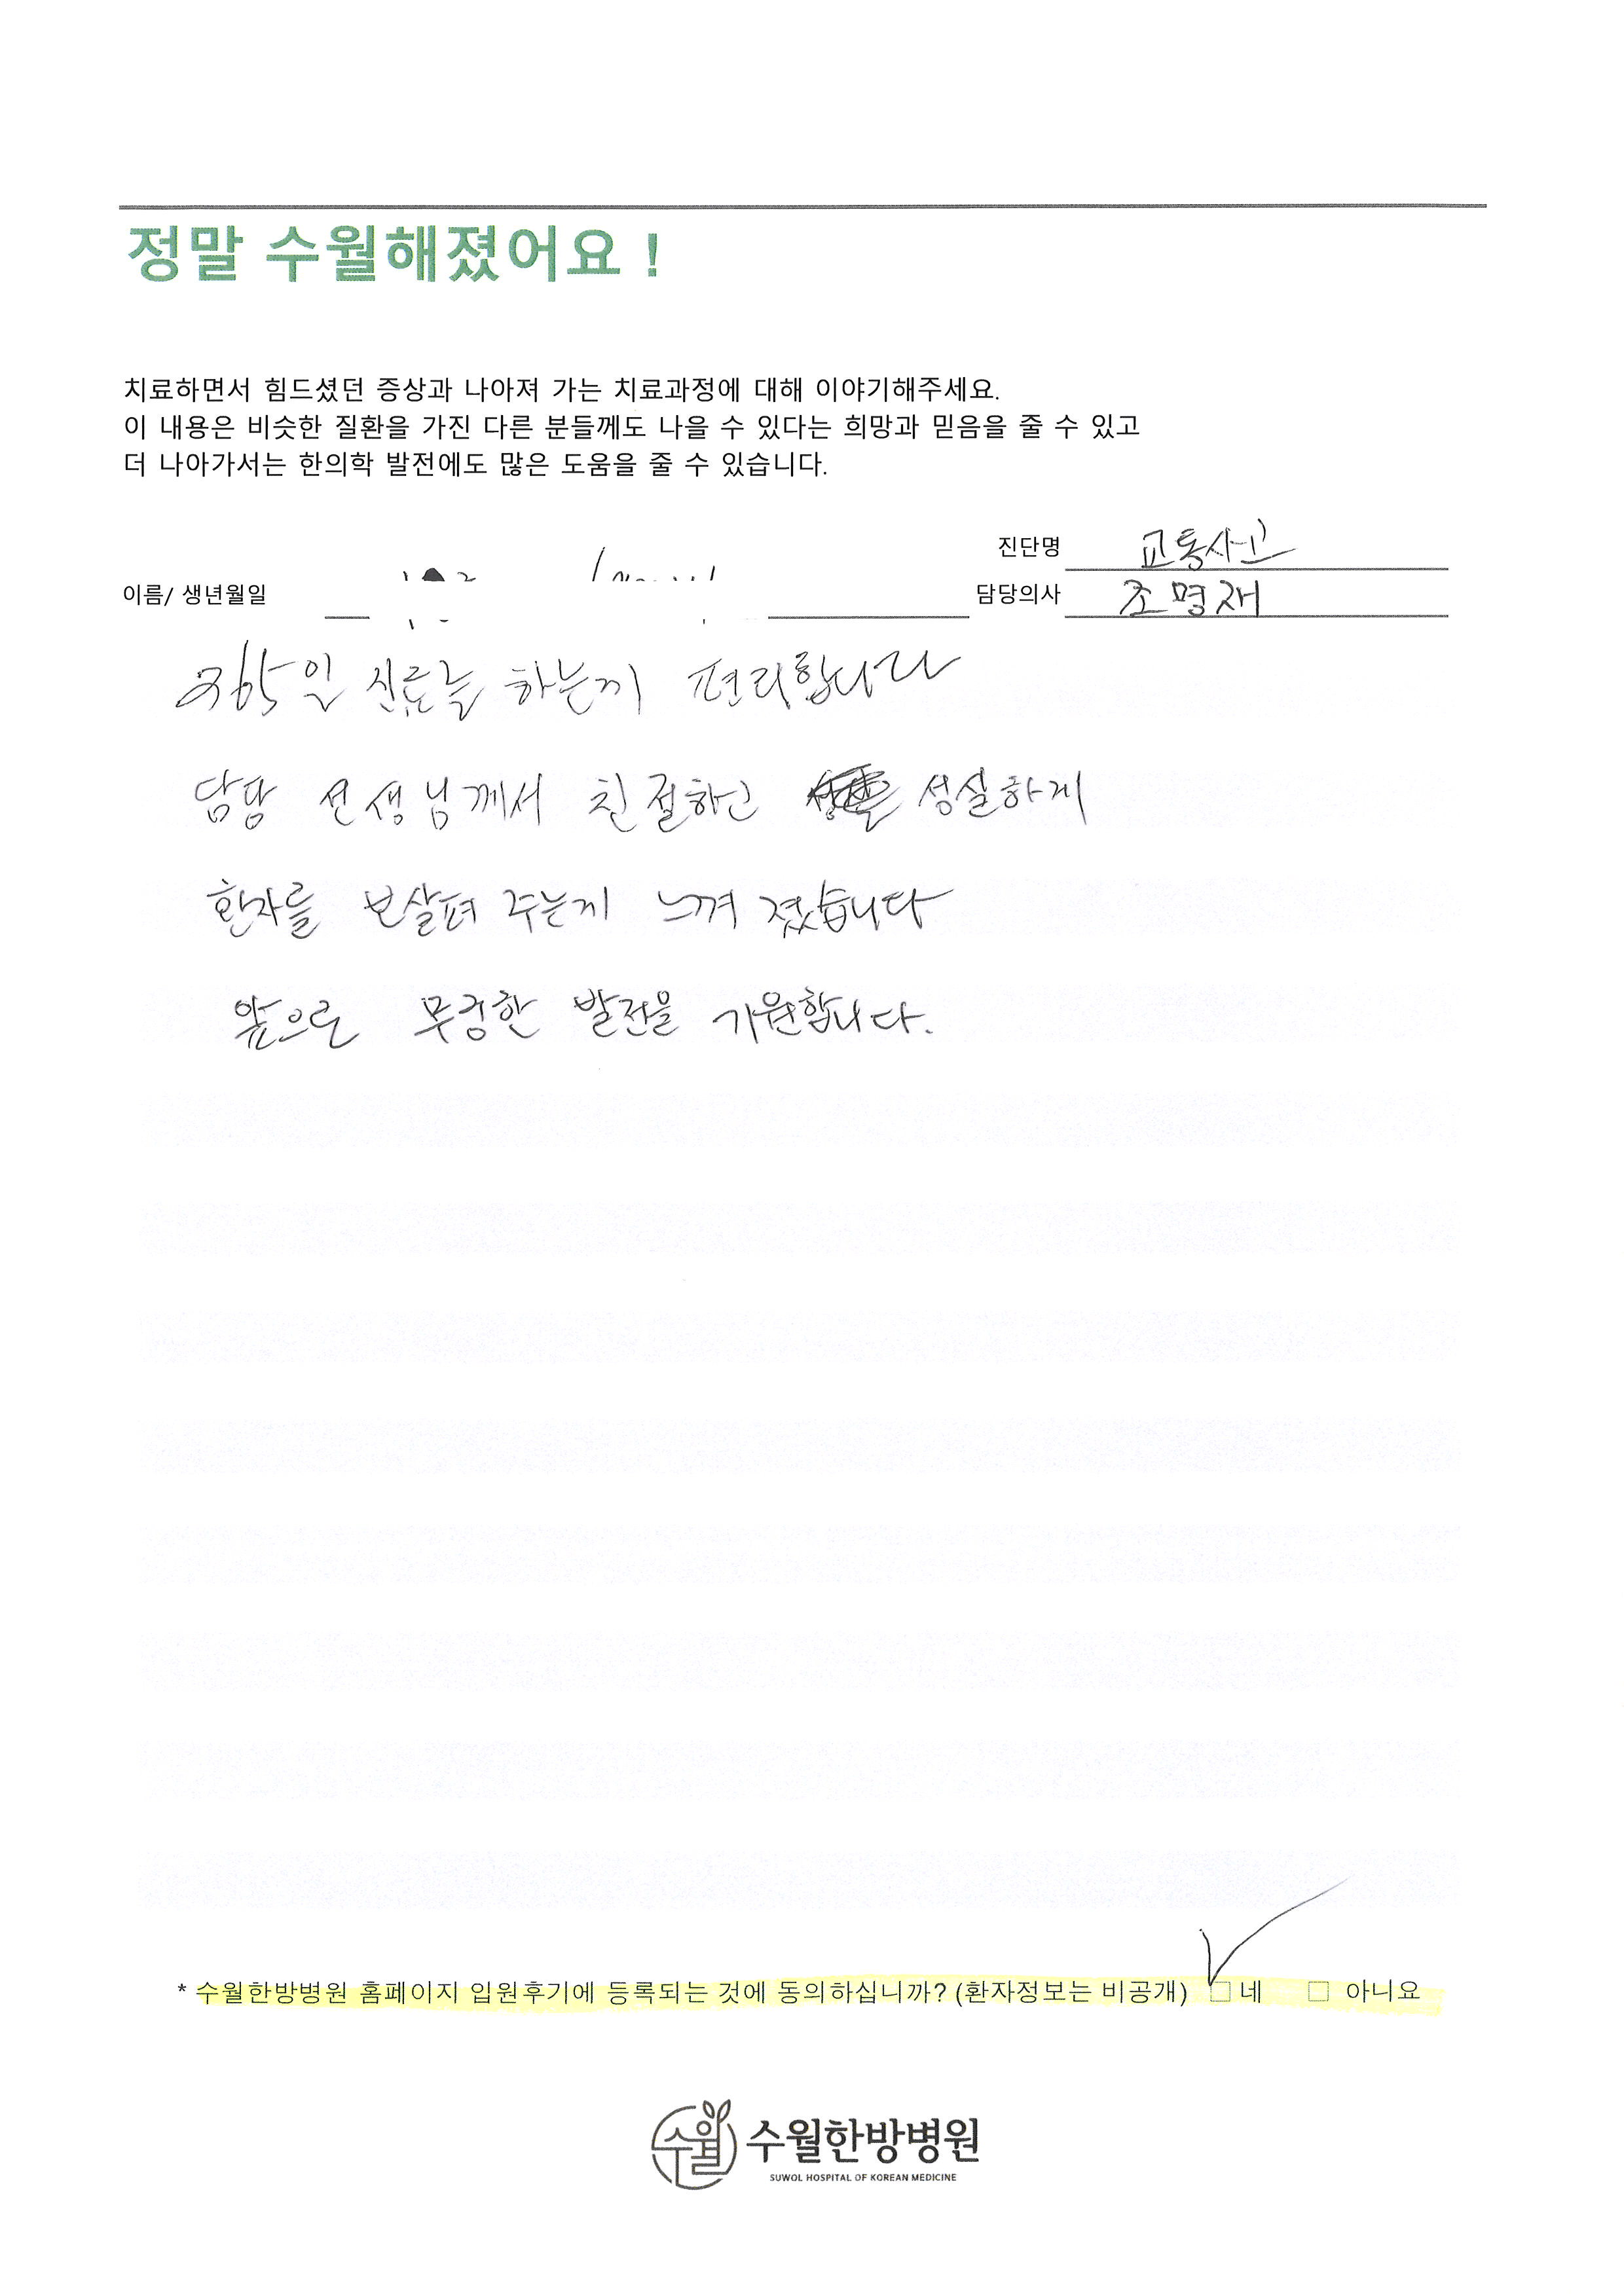 정말 수월해졌어요 !
치료하면서 힘드셨던 증상과 나아져 가는 치료과정에 대해 이야기해주세요.
이 내용은 비슷한 질환을 가진 다른 분들께도 나을 수 있다는 희망과 믿음을 줄 수 있고
더 나아가서는 한의학 발전에도 많은 도움을 줄 수 있습니다.
진단명 교통사고
이름/ 생년월일 담당의사 조명재
365일 진료를 하는게 편리합니다
담당 선생님께서 친절하고 성실하게
환자를 보살펴 주는게 느껴 졌습니다
앞으로 무궁한 발전을 기원합니다.
* 수월한방병원 홈페이지 입원후기에 등록되는 것에 동의하십니까? (환자정보는 비공개) □ 네 □ 아니요
수월 수월한방병원
SUWOL HOSPITAL OF KOREAN MEDICINE